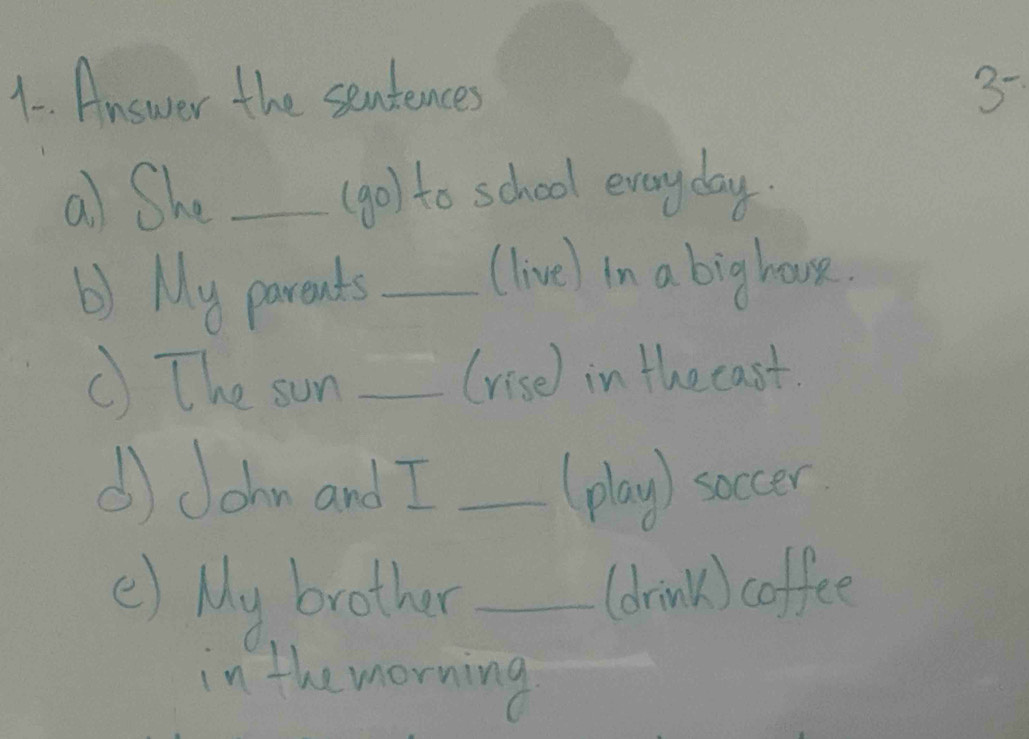 1-. Answer the sentences
3-.
a) She ___ (go) to school everyday.
b) My parents ___ (live) in a big house.
c) The sun ___ (rise) in the east.
d) John and I ___ (play) soccer.
e) My brother ___ (drink) coffee
in the morning.